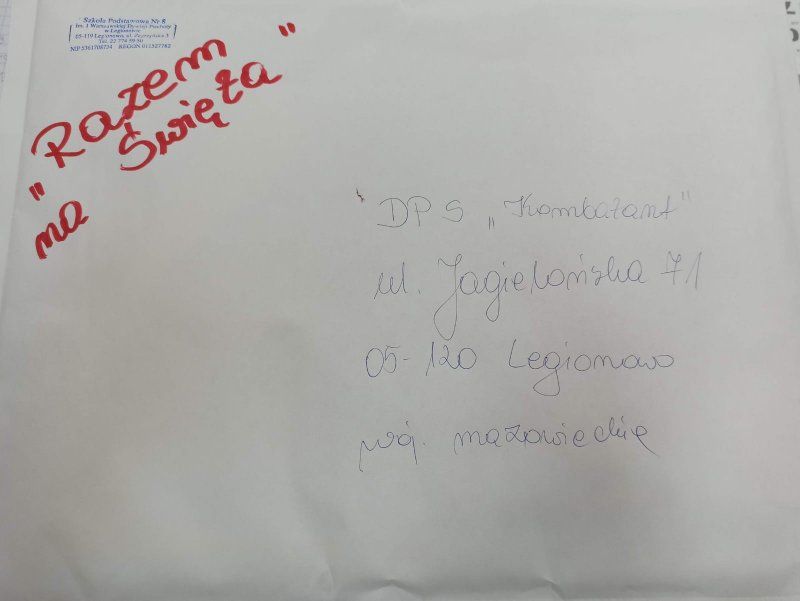 Szkoła Podstawowa Nr 8
im. I Warszawskiej Dywizji Piechoty
w Legionowie
05-119 Legionowo, ul. Zegrzyńska 3
Tel. 22 774 59 50
NIP 5361708734 REGON 011527782
„Razem
na Święta"
DPS „Kombatant"
ul. Jagielońska 71
05-120 Legionowo
woj. mazowieckie